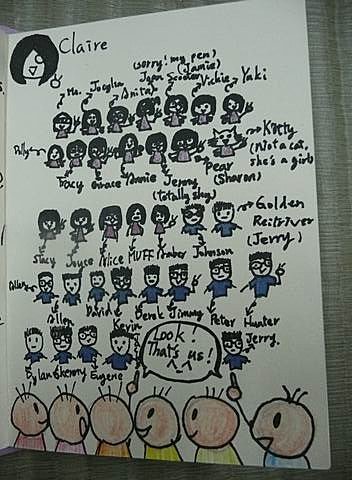 Claire
(sorry! my pen)
(Jamie)
Ms. Jocelyn Anita Joan Scooter Vickie Yaki
Polly
Kitty
(Not a cat,
she's a girl)
Tracy Grace Annie Jenny Pear
(totally shy) (Sharon)
Golden
Retriver
(Jerry)
Stacy Joyce Alice MUFF Amber Johnson
Allen David Derek Jimmy Peter Hunter
Kevin
Look!
That's us!
Jerry
Dylan Skenny Eugene